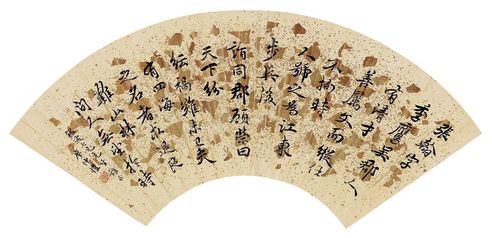 張翰字
季鷹吳郡人
有清才
善屬文而縱任
不拘時
人號之為江東
步兵後
謂同郡顧榮曰
天下紛
紜禍難未已夫
有四海
之名者求退良
難山林
間人無望於時